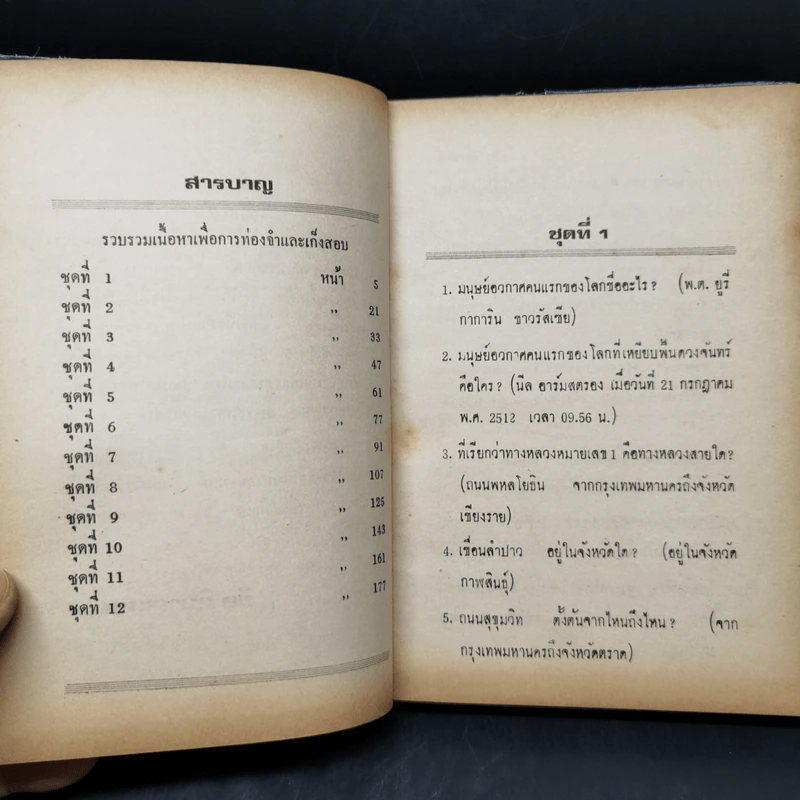 สารบาญ
รวบรวมเนื้อหาเพื่อการท่องจำและเก็งสอบ
ชุดที่ 1 หน้า 5
ชุดที่ 2 ,, 21
ชุดที่ 3 ,, 33
ชุดที่ 4 ,, 47
ชุดที่ 5 ,, 61
ชุดที่ 6 ,, 77
ชุดที่ 7 ,, 91
ชุดที่ 8 ,, 107
ชุดที่ 9 ,, 125
ชุดที่ 10 ,, 143
ชุดที่ 11 ,, 161
ชุดที่ 12 ,, 177
ชุดที่ 1
1. มนุษย์อวกาศคนแรกของโลกชื่ออะไร? (พ.ต. ยูรี
กาการิน ชาวรัสเซีย)
2. มนุษย์อวกาศคนแรกของโลกที่เหยียบพื้นดวงจันทร์
คือใคร? (นีล อาร์มสตรอง เมื่อวันที่ 21 กรกฎาคม
พ.ศ. 2512 เวลา 09.56 น.)
3. ที่เรียกว่าทางหลวงหมายเลข 1 คือทางหลวงสายใด?
(ถนนพหลโยธิน จากกรุงเทพมหานครถึงจังหวัด
เชียงราย)
4. เขื่อนลำปาว อยู่ในจังหวัดใด? (อยู่ในจังหวัด
กาฬสินธุ์)
5. ถนนสุขุมวิท ตั้งต้นจากไหนถึงไหน? (จาก
กรุงเทพมหานครถึงจังหวัดตราด)